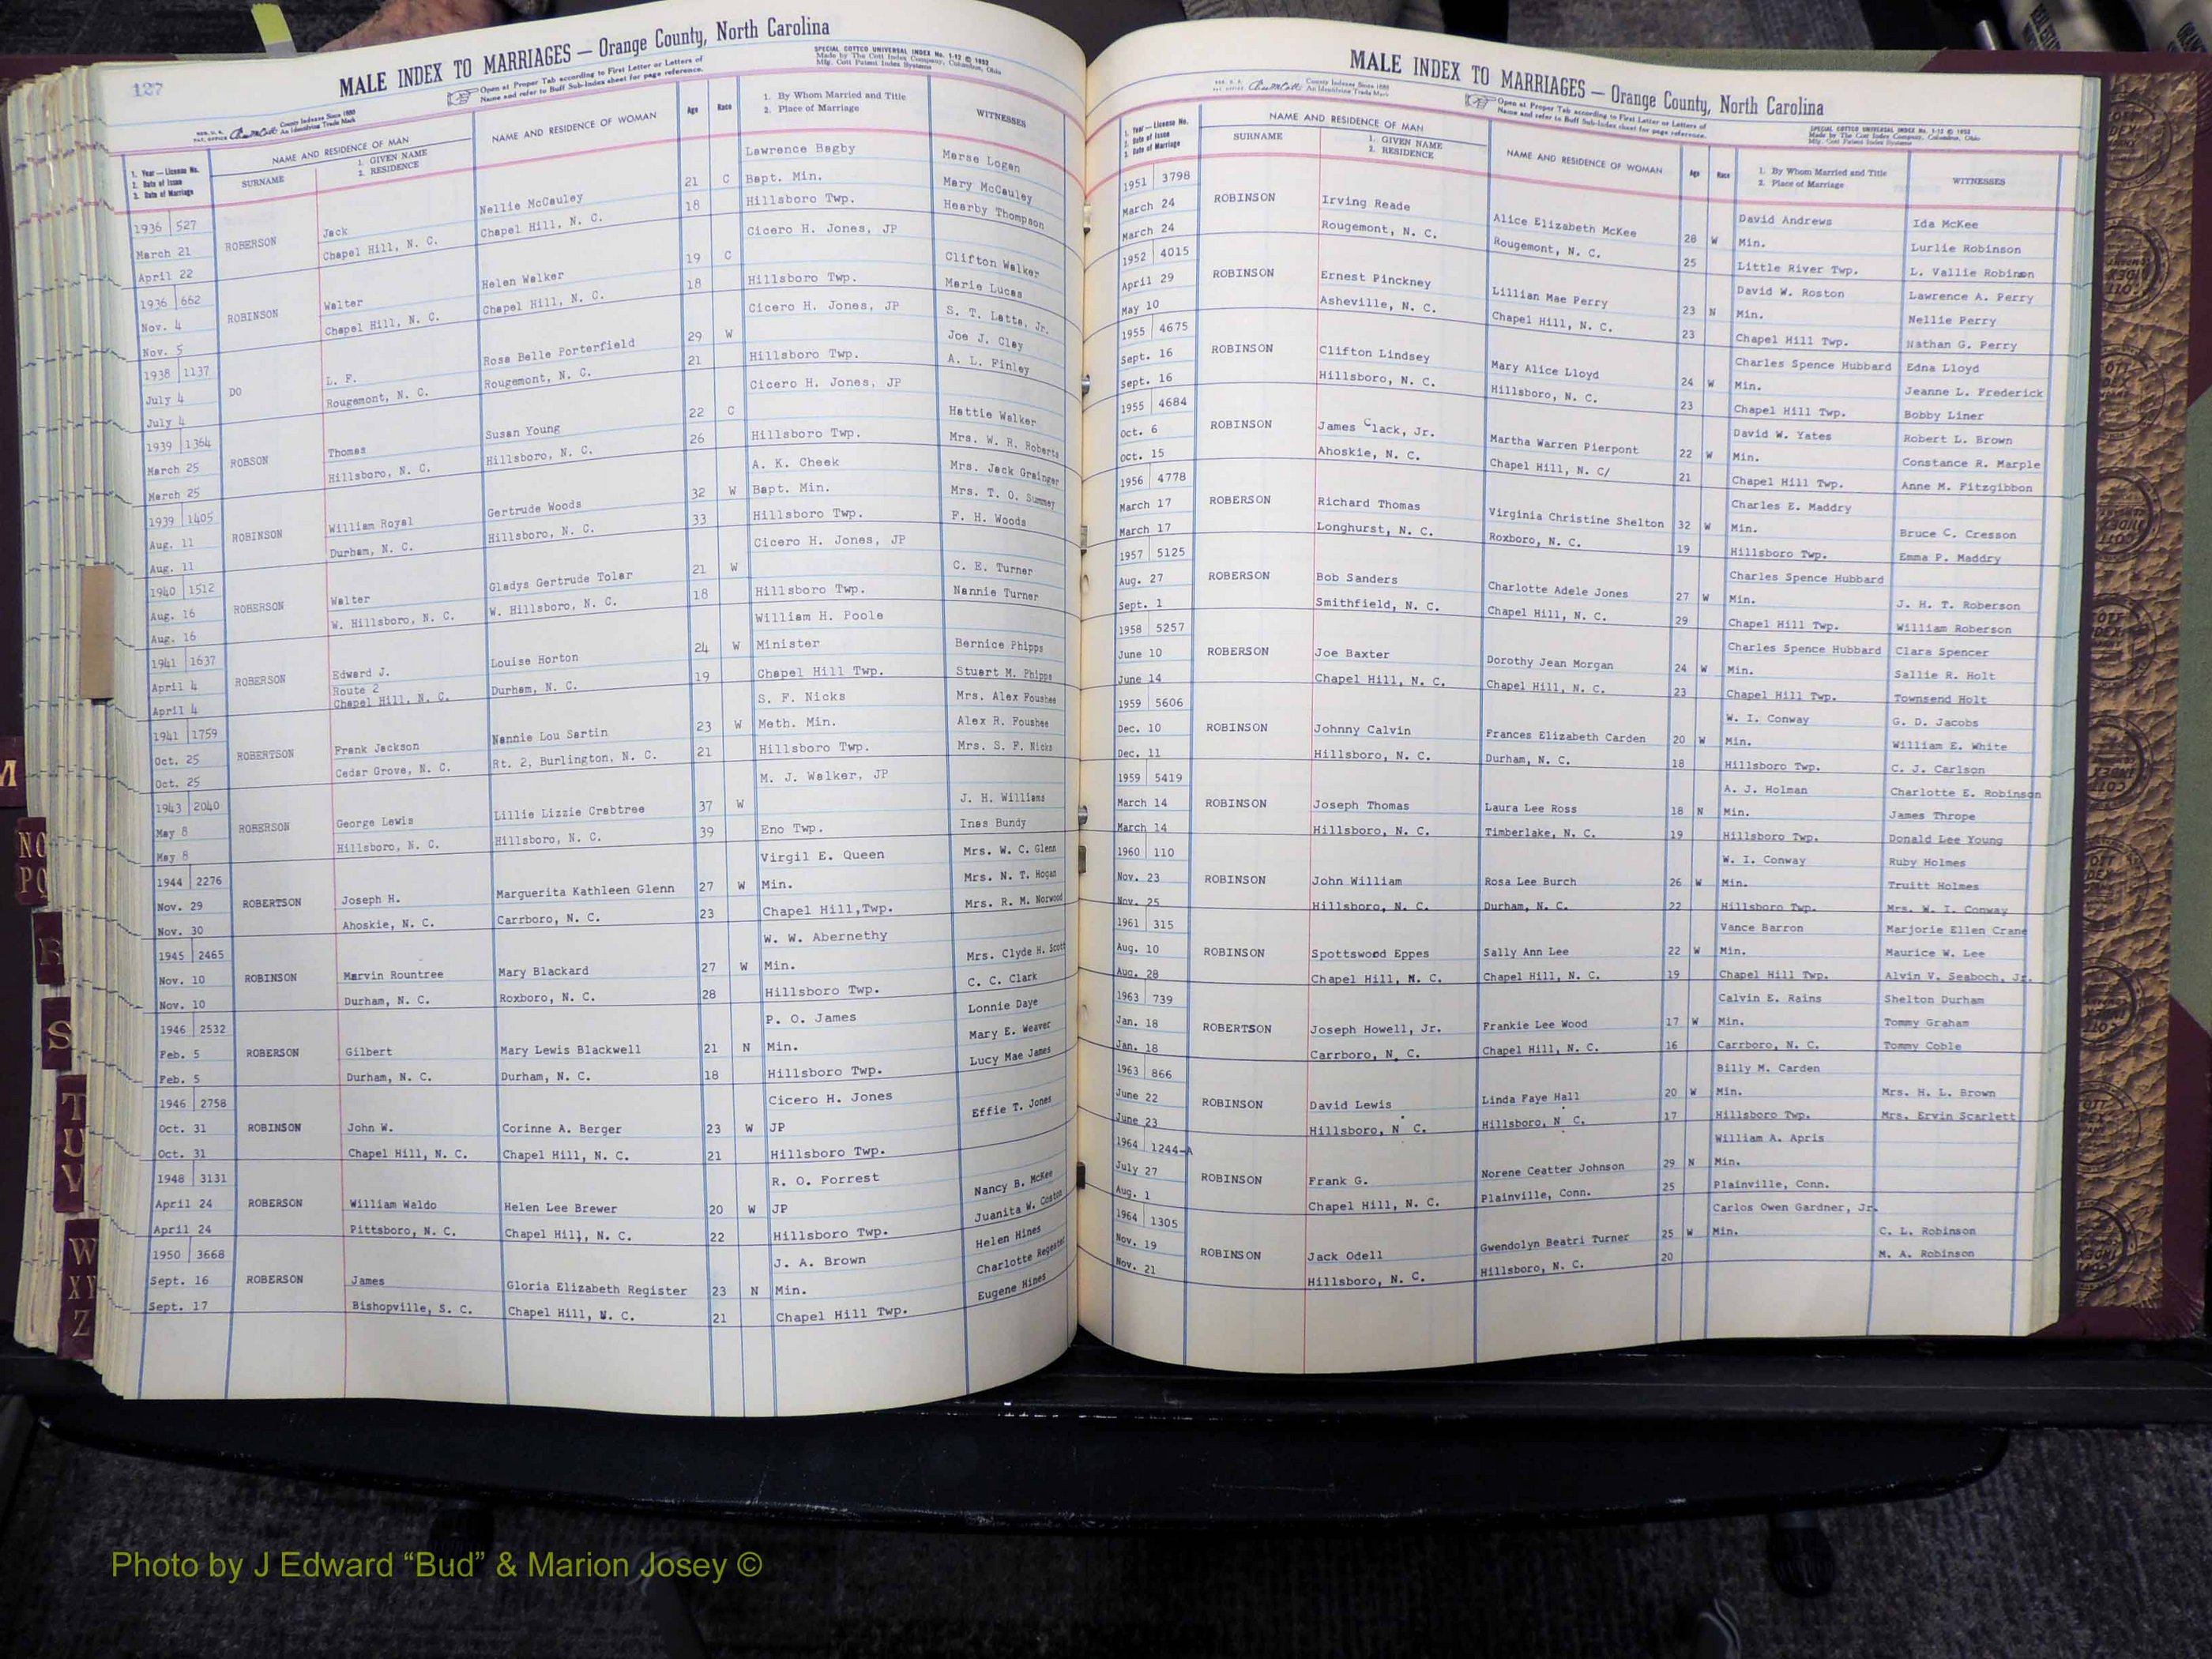 127
MALE INDEX TO MARRIAGES — Orange County, North Carolina
SPECIAL COTTCO UNIVERSAL INDEX No. 1-12 © 1952
Made by The Cott Index Company, Columbus, Ohio
Mfg. Cott Patent Index Systems
Open at Proper Tab according to First Letter or Letters of
Name and refer to Buff Sub-Index sheet for page reference.
County Indexes Since 1888
An Identifying Trade Mark
1. Year — License No.
2. Date of Issue
3. Date of Marriage
NAME AND RESIDENCE OF MAN
SURNAME
1. GIVEN NAME
2. RESIDENCE
NAME AND RESIDENCE OF WOMAN
Age
Race
1. By Whom Married and Title
2. Place of Marriage
WITNESSES
1936 527 ROBERSON Jack Nellie McCauley 21 C Lawrence Bagby Marse Logan
March 21 Chapel Hill, N. C. Chapel Hill, N. C. 18 Bapt. Min. Mary McCauley
April 22 Hillsboro Twp. Hearby Thompson
1936 662 ROBINSON Walter Helen Walker 19 C Cicero H. Jones, JP Clifton Walker
Nov. 4 Chapel Hill, N. C. Chapel Hill, N. C. 18 Hillsboro Twp. Marie Lucas
Nov. 5
1938 1137 DO L. F. Rosa Belle Porterfield 29 W Cicero H. Jones, JP S. T. Latta, Jr.
July 4 Rougemont, N. C. Rougemont, N. C. 21 Hillsboro Twp. Joe J. Clay
July 4 A. L. Finley
1939 1364 ROBSON Thomas Susan Young 22 C Cicero H. Jones, JP Hattie Walker
March 25 Hillsboro, N. C. Hillsboro, N. C. 26 Hillsboro Twp.
March 25
1939 1405 ROBINSON William Royal Gertrude Woods 32 W A. K. Cheek Mrs. W. R. Roberts
Aug. 11 Durham, N. C. Hillsboro, N. C. 33 Bapt. Min. Mrs. Jack Grainger
Aug. 11 Hillsboro Twp. Mrs. T. O. Summey
F. H. Woods
1940 1512 ROBERSON Walter Gladys Gertrude Toler 21 W Cicero H. Jones, JP C. E. Turner
Aug. 16 W. Hillsboro, N. C. W. Hillsboro, N. C. 18 Hillsboro Twp. Nannie Turner
Aug. 16
1941 1637 ROBERSON Edward J. Louise Horton 24 W William H. Poole Bernice Phipps
April 4 Route 2 Durham, N. C. 19 Minister Stuart M. Phipps
April 4 Chapel Hill, N. C. Chapel Hill Twp.
1941 1759 ROBERTSON Frank Jackson Nannie Lou Sartin 23 W S. F. Nicks Mrs. Alex Foushee
Oct. 25 Cedar Grove, N. C. Rt. 2, Burlington, N. C. 21 Meth. Min. Alex R. Foushee
Oct. 25 Hillsboro Twp. Mrs. S. F. Nicks
1943 2040 ROBERSON George Lewis Lillie Lizzie Crabtree 37 W M. J. Walker, JP J. H. Williams
May 8 Hillsboro, N. C. Hillsboro, N. C. 39 Eno Twp. Ines Bundy
May 8
1944 2276 ROBERTSON Joseph H. Marguerita Kathleen Glenn 27 W Virgil E. Queen Mrs. W. C. Glenn
Nov. 29 Ahoskie, N. C. Carrboro, N. C. 23 Min. Mrs. N. T. Hogan
Nov. 30 Chapel Hill,Twp. Mrs. R. M. Norwood
1945 2465 ROBINSON Marvin Rountree Mary Blackard 27 W W. W. Abernethy Mrs. Clyde H. Scott
Nov. 10 Durham, N. C. Roxboro, N. C. 28 Min. C. C. Clark
Nov. 10 Hillsboro Twp.
1946 2532 ROBERSON Gilbert Mary Lewis Blackwell 21 N P. O. James Lonnie Daye
Feb. 5 Durham, N. C. Durham, N. C. 18 Min. Mary E. Weaver
Feb. 5 Hillsboro Twp. Lucy Mae James
1946 2758 ROBINSON John W. Corinne A. Berger 23 W Cicero H. Jones Effie T. Jones
Oct. 31 Chapel Hill, N. C. Chapel Hill, N. C. 21 JP
Oct. 31 Hillsboro Twp.
1948 3131 ROBERSON William Waldo Helen Lee Brewer 20 W R. O. Forrest Nancy B. McKee
April 24 Pittsboro, N. C. Chapel Hill, N. C. 22 JP Juanita W. Coston
April 24 Hillsboro Twp.
1950 3668 ROBERSON James Gloria Elizabeth Register 23 N J. A. Brown Helen Hines
Sept. 16 Bishopville, S. C. Chapel Hill, N. C. 21 Min. Charlotte Regester
Sept. 17 Chapel Hill Twp. Eugene Hines
MALE INDEX TO MARRIAGES — Orange County, North Carolina
County Indexes Since 1888
An Identifying Trade Mark
Open at Proper Tab according to First Letter or Letters of
Name and refer to Buff Sub-Index sheet for page reference.
SPECIAL COTTCO UNIVERSAL INDEX No. 1-12 © 1952
Made by The Cott Index Company, Columbus, Ohio
Mfg. Cott Patent Index Systems
1. Year — License No.
2. Date of Issue
3. Date of Marriage
NAME AND RESIDENCE OF MAN
SURNAME
1. GIVEN NAME
2. RESIDENCE
NAME AND RESIDENCE OF WOMAN
Age
Race
1. By Whom Married and Title
2. Place of Marriage
WITNESSES
1951 3798 ROBINSON Irving Reade Alice Elizabeth McKee 28 W David Andrews Ida McKee
March 24 Rougemont, N. C. Rougemont, N. C. 25 Min. Lurlie Robinson
March 24 Little River Twp. L. Vallie Robinson
1952 4015 ROBINSON Ernest Pinckney Lillian Mae Perry 23 N David W. Roston Lawrence A. Perry
April 29 Asheville, N. C. Chapel Hill, N. C. 23 Min. Nellie Perry
May 10 Chapel Hill Twp. Nathan G. Perry
1955 4675 ROBINSON Clifton Lindsey Mary Alice Lloyd 24 W Charles Spence Hubbard Edna Lloyd
Sept. 16 Hillsboro, N. C. Hillsboro, N. C. 23 Min. Jeanne L. Frederick
Sept. 16 Chapel Hill Twp. Bobby Liner
1955 4684 ROBINSON James Clack, Jr. Martha Warren Pierpont 22 W David W. Yates Robert L. Brown
Oct. 6 Ahoskie, N. C. Chapel Hill, N. C/ 21 Min. Constance R. Marple
Oct. 15 Chapel Hill Twp. Anne M. Fitzgibbon
1956 4778 ROBERSON Richard Thomas Virginia Christine Shelton 32 W Charles E. Maddry Bruce C. Cresson
March 17 Longhurst, N. C. Roxboro, N. C. 19 Min. Emma P. Maddry
March 17 Hillsboro Twp.
1957 5125 ROBERSON Bob Sanders Charlotte Adele Jones 27 W Charles Spence Hubbard J. H. T. Roberson
Aug. 27 Smithfield, N. C. Chapel Hill, N. C. 29 Min. William Roberson
Sept. 1 Chapel Hill Twp.
1958 5257 ROBERSON Joe Baxter Dorothy Jean Morgan 24 W Charles Spence Hubbard Clara Spencer
June 10 Chapel Hill, N. C. Chapel Hill, N. C. 23 Min. Sallie R. Holt
June 14 Chapel Hill Twp. Townsend Holt
1959 5606 ROBINSON Johnny Calvin Frances Elizabeth Carden 20 W W. I. Conway G. D. Jacobs
Dec. 10 Hillsboro, N. C. Durham, N. C. 18 Min. William E. White
Dec. 11 Hillsboro Twp. C. J. Carlson
1959 5419 ROBINSON Joseph Thomas Laura Lee Ross 18 N A. J. Holman Charlotte E. Robinson
March 14 Hillsboro, N. C. Timberlake, N. C. 19 Min. James Thrope
March 14 Hillsboro Twp. Donald Lee Young
1960 110 ROBINSON John William Rosa Lee Burch 26 W W. I. Conway Ruby Holmes
Nov. 23 Hillsboro, N. C. Durham, N. C. 22 Min. Truitt Holmes
Nov. 25 Hillsboro Twp. Mrs. W. I. Conway
1961 315 ROBINSON Spottswood Eppes Sally Ann Lee 22 W Vance Barron Marjorie Ellen Crane
Aug. 10 Chapel Hill, N. C. Chapel Hill, N. C. 19 Min. Maurice W. Lee
Aug. 28 Chapel Hill Twp. Alvin V. Seaboch, Jr.
1963 739 ROBERTSON Joseph Howell, Jr. Frankie Lee Wood 17 W Calvin E. Rains Shelton Durham
Jan. 18 Carrboro, N. C. Chapel Hill, N. C. 16 Min. Tommy Graham
Jan. 18 Carrboro, N. C. Tommy Coble
1963 866 ROBINSON David Lewis Linda Faye Hall 20 W Billy M. Carden Mrs. H. L. Brown
June 22 Hillsboro, N C. Hillsboro, N C. 17 Min. Mrs. Ervin Scarlett
June 23 Hillsboro Twp.
1964 1244-A ROBINSON Frank G. Norene Ceatter Johnson 29 N William A. Apris
July 27 Chapel Hill, N. C. Plainville, Conn. 25 Min.
Aug. 1 Plainville, Conn.
1964 1305 ROBINSON Jack Odell Gwendolyn Beatri Turner 25 W Carlos Owen Gardner, Jr. C. L. Robinson
Nov. 19 Hillsboro, N. C. Hillsboro, N. C. 20 Min. M. A. Robinson
Nov. 21
M
NO
PQ
R
S
T
U
V
W
XY
Z
Photo by J Edward “Bud” & Marion Josey ©